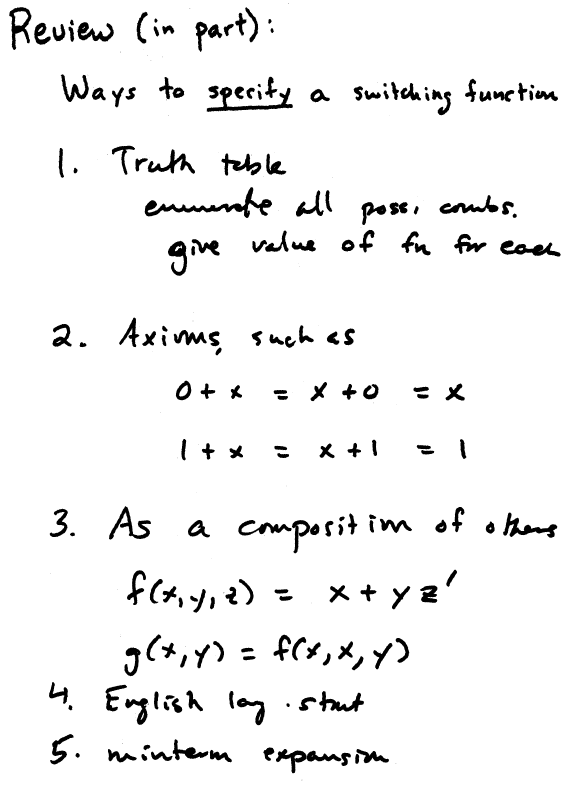 Review (in part):
Ways to specify a switching function
1. Truth table
enumerate all poss. combs.
give value of fn for each
2. Axioms, such as
0 + x = x + 0 = x
1 + x = x + 1 = 1
3. As a composition of others
f(x, y, z) = x + y z'
g(x, y) = f(x, x, y)
4. English lang. stmt
5. minterm expansion